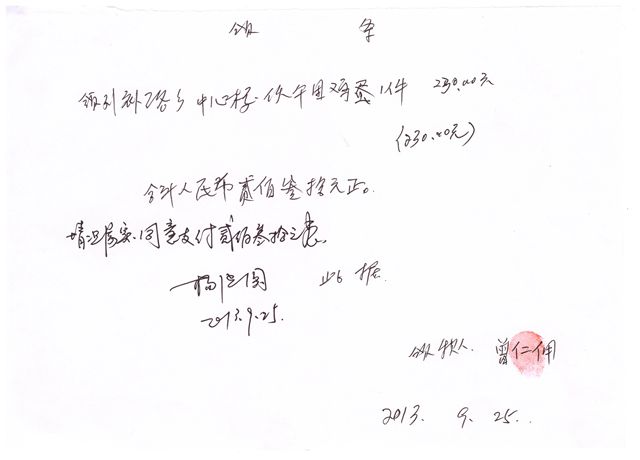 领 条
领到补洛乡中心校伙午用鸡蛋1件 230.00元
(230.00元)
合计人民币贰佰叁拾元正。
情况属实.同意支付贰佰叁拾元
杨
此 据.
2013.9.25.
领款人. 曾仁佣
2013. 9. 25.